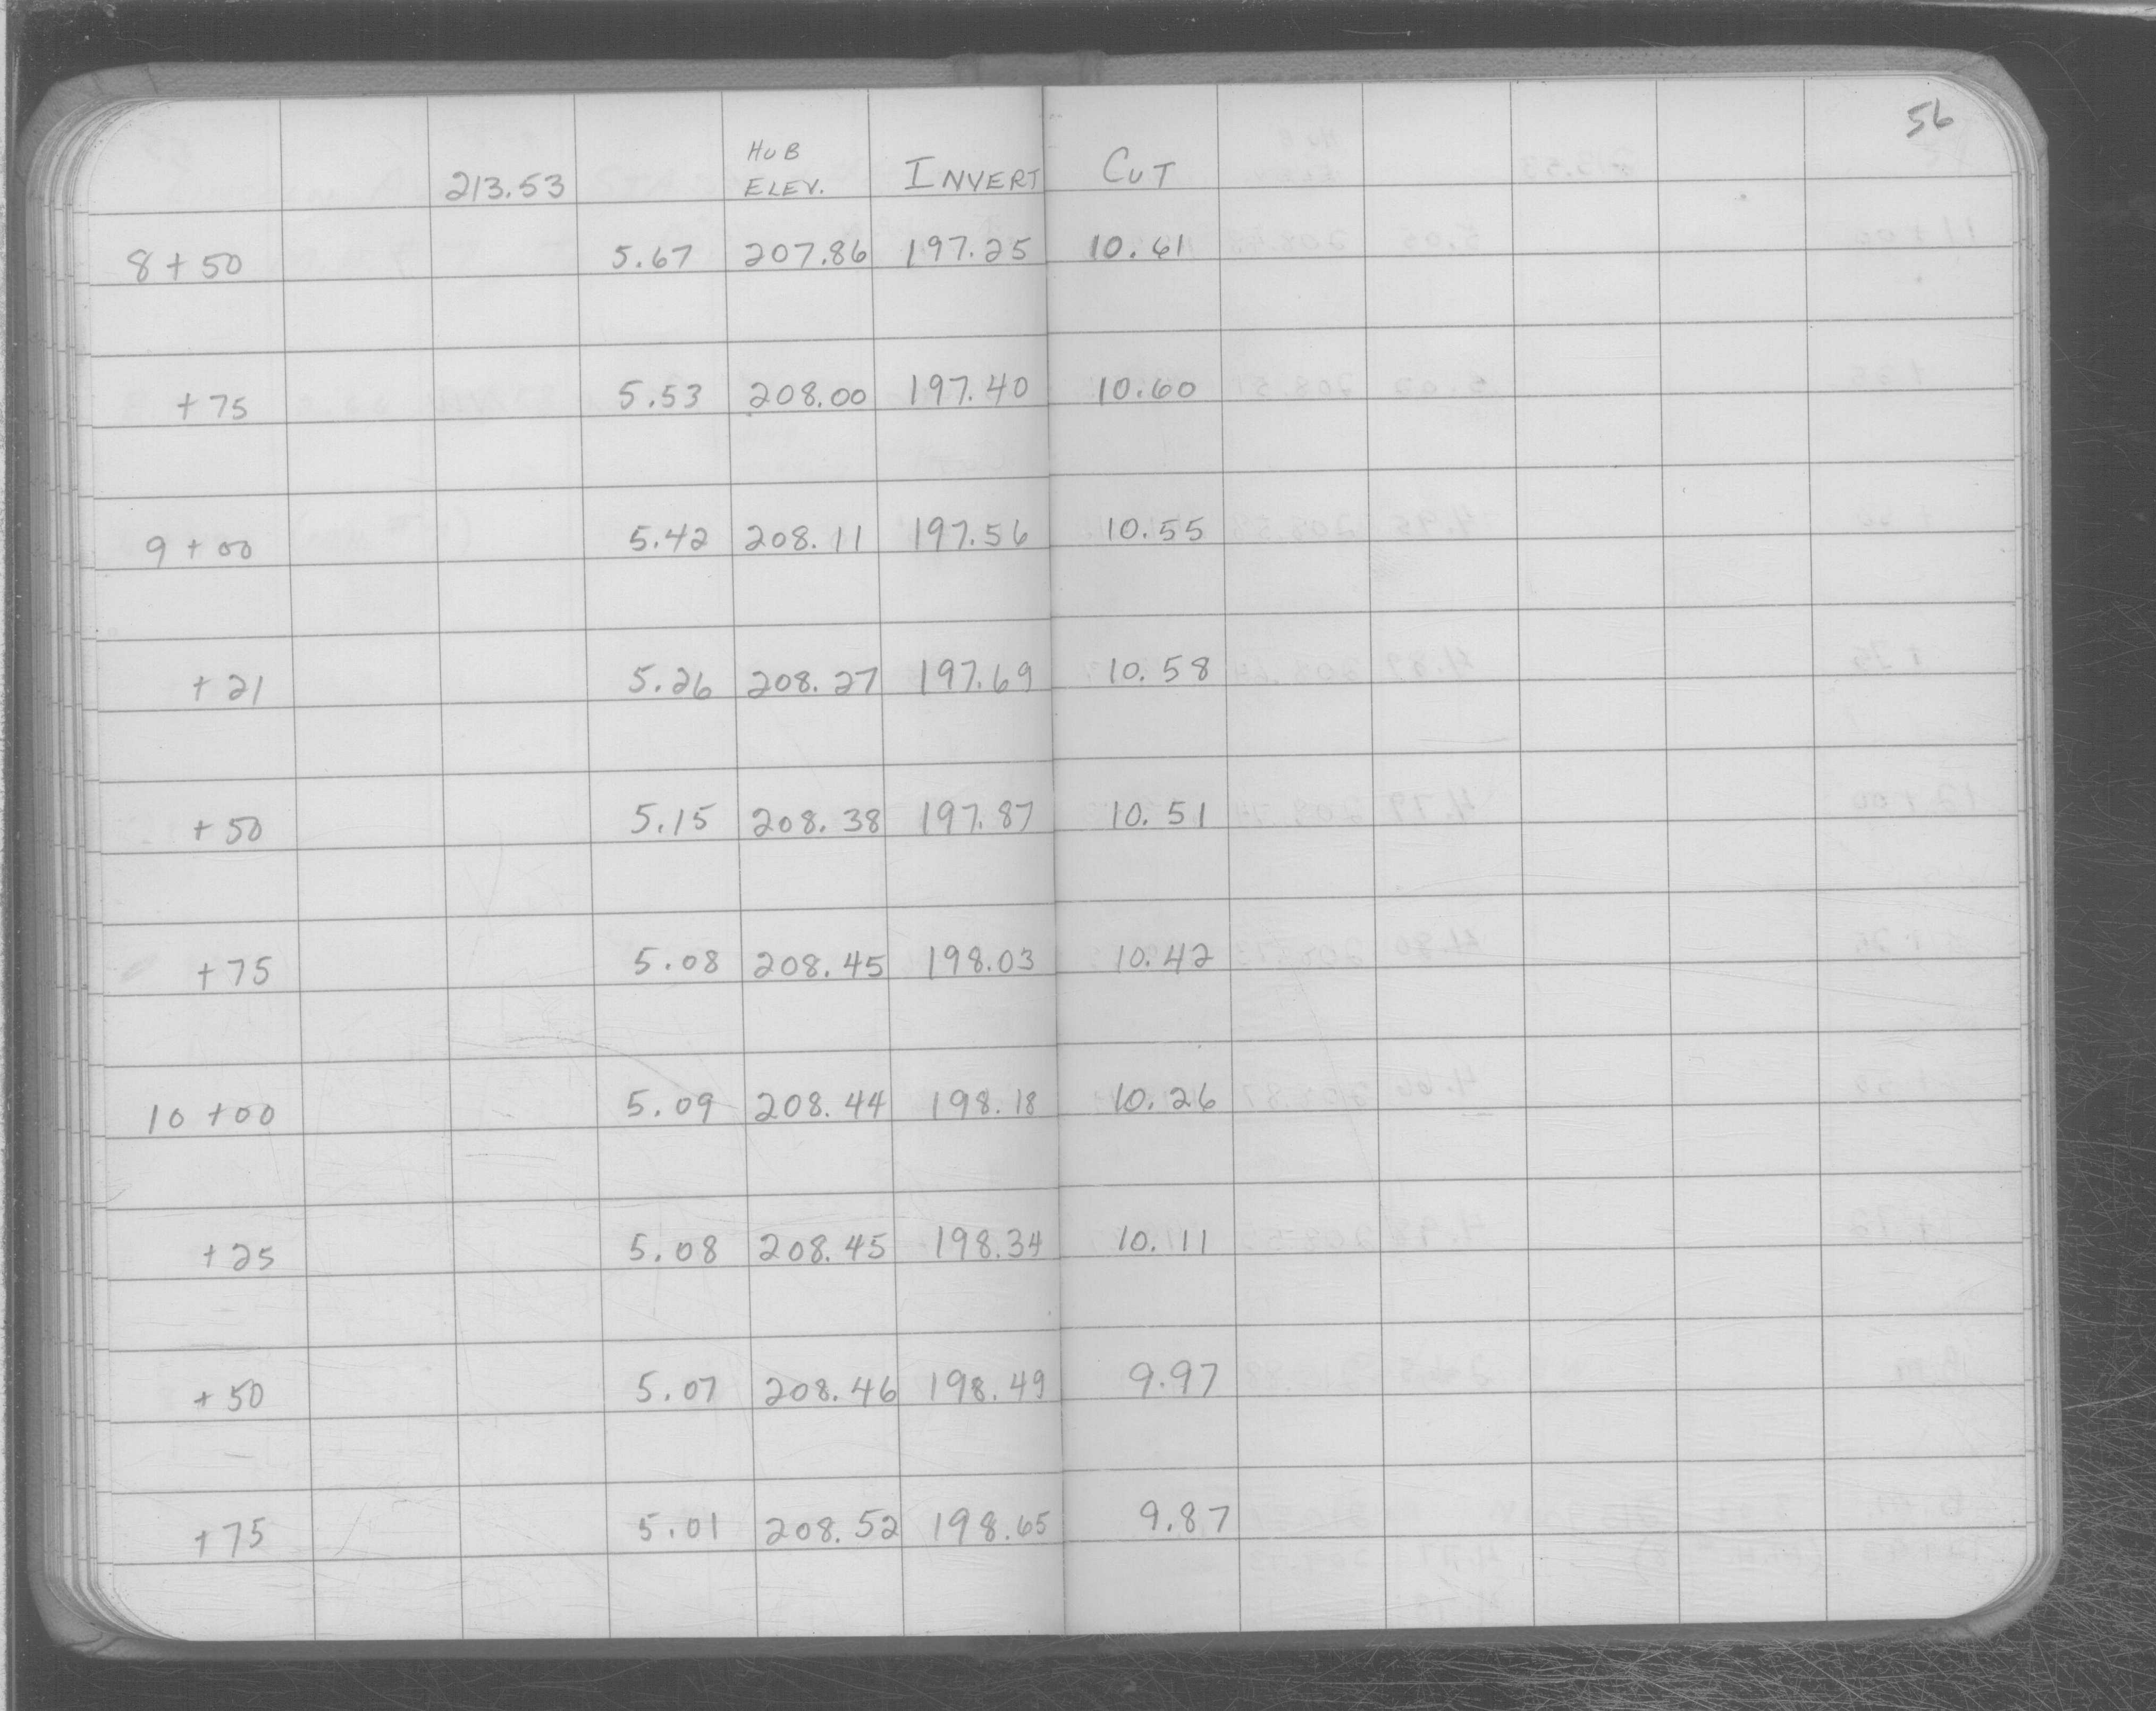 56
213.53 HUB ELEV. INVERT CUT
8+50 5.67 207.86 197.25 10.61
+75 5.53 208.00 197.40 10.60
9+00 5.42 208.11 197.56 10.55
+21 5.26 208.27 197.69 10.58
+50 5.15 208.38 197.87 10.51
+75 5.08 208.45 198.03 10.42
10+00 5.09 208.44 198.18 10.26
+25 5.08 208.45 198.34 10.11
+50 5.07 208.46 198.49 9.97
+75 5.01 208.52 198.65 9.87